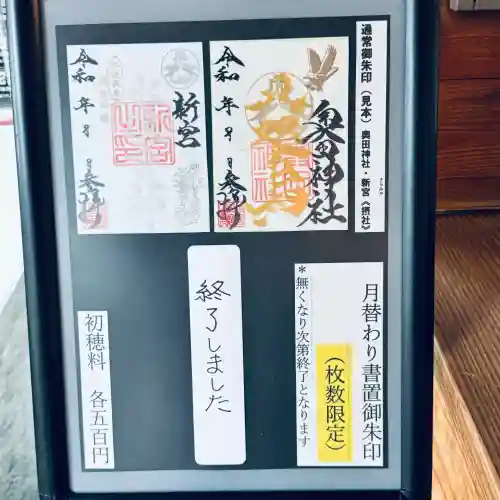 通常御朱印（見本）奥田神社・新宮《摂社》
奥田神社
令和 年 月 日 参拝
新宮
令和 年 月 日 参拝
月替わり書置御朱印
（枚数限定）
＊無くなり次第終了となります
終了しました
初穂料 各五百円